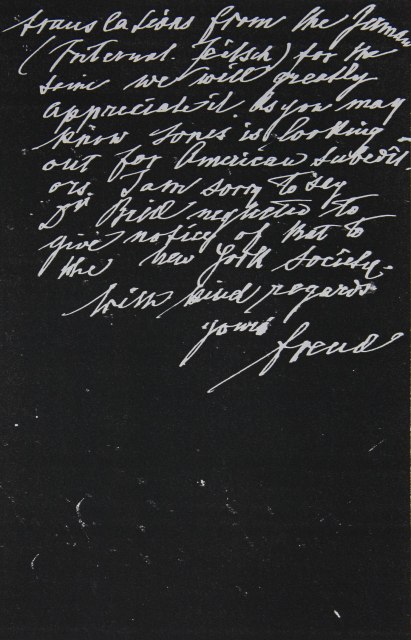 translations from the German
(Internat. Zeitsch) for the
same we will greatly
appreciate it. As you may
know Jones is looking
out for American subedit-
ors. I am sorry to say
Dr Brill neglected to
give notice of that to
the new York Society.
With kind regards
yours
Freud